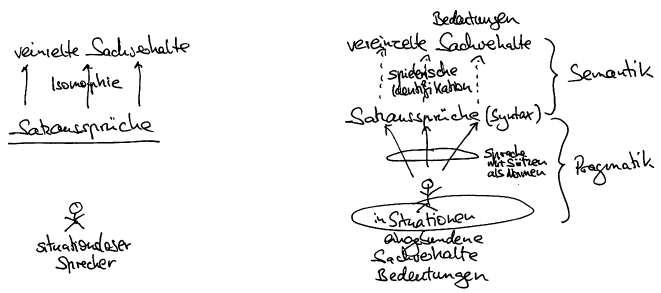 vereinzelte Sachverhalte
Isomorphie
Satzaussprüche
situationsloser
Sprecher
Bedeutungen
vereinzelte Sachverhalte
spielerische
Identifikation
Satzaussprüche (Syntax)
Sprache
mit Sätzen
als Normen
in Situationen
abgesunde
Sachverhalte
Bedeutungen
Semantik
Pragmatik